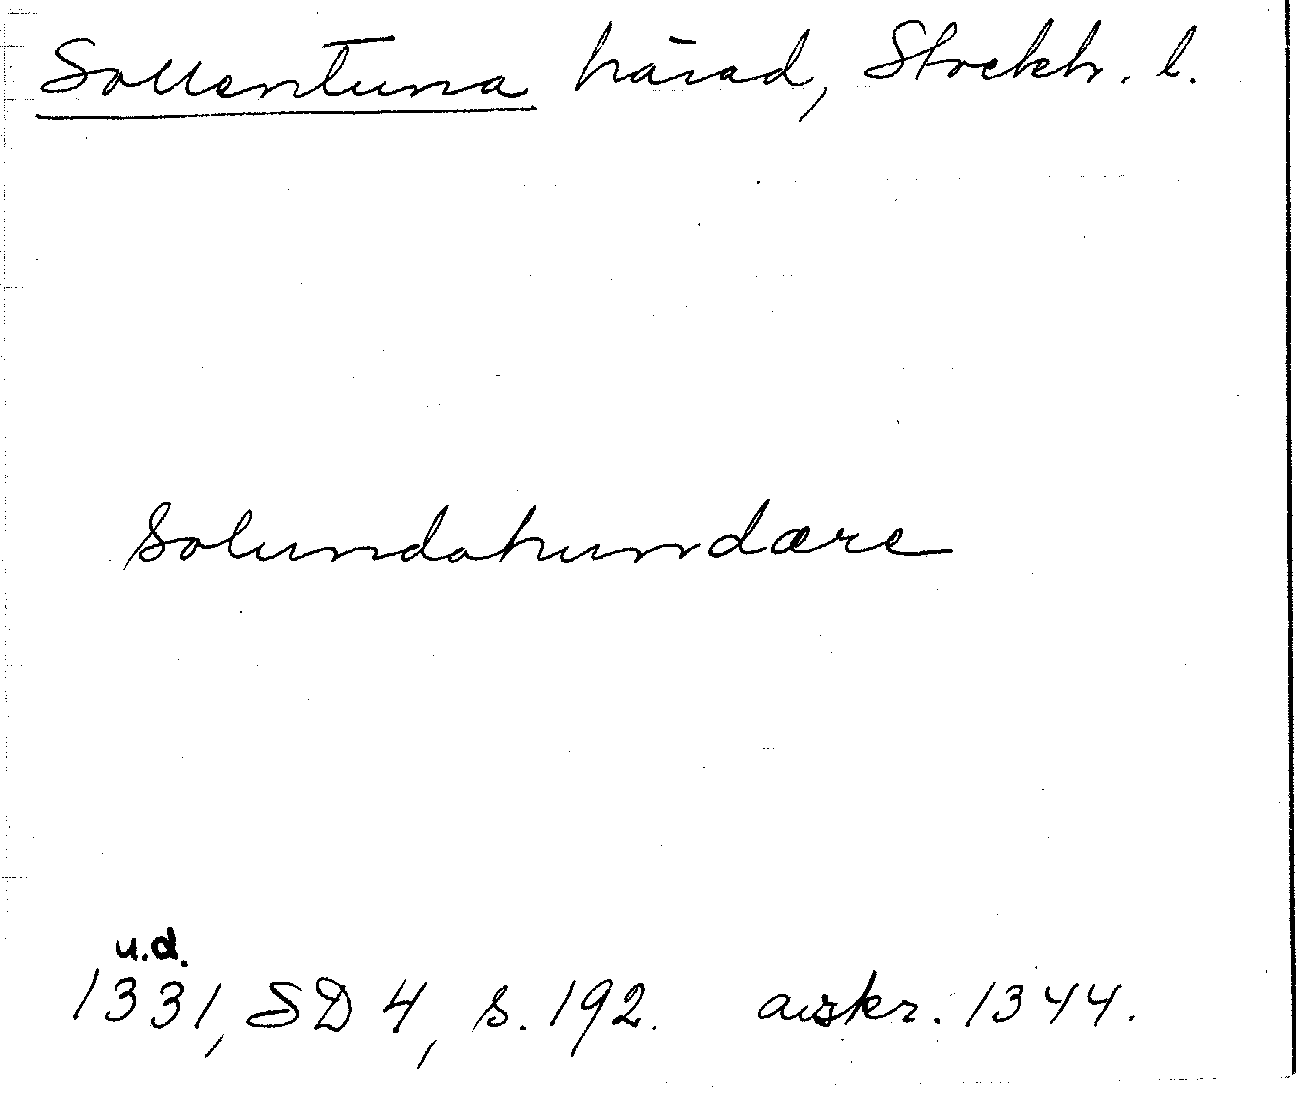 Sollentuna härad, Stockh. l.
Solundahundære
u.d.
1331, SD 4, s. 192. avskr. 1344.